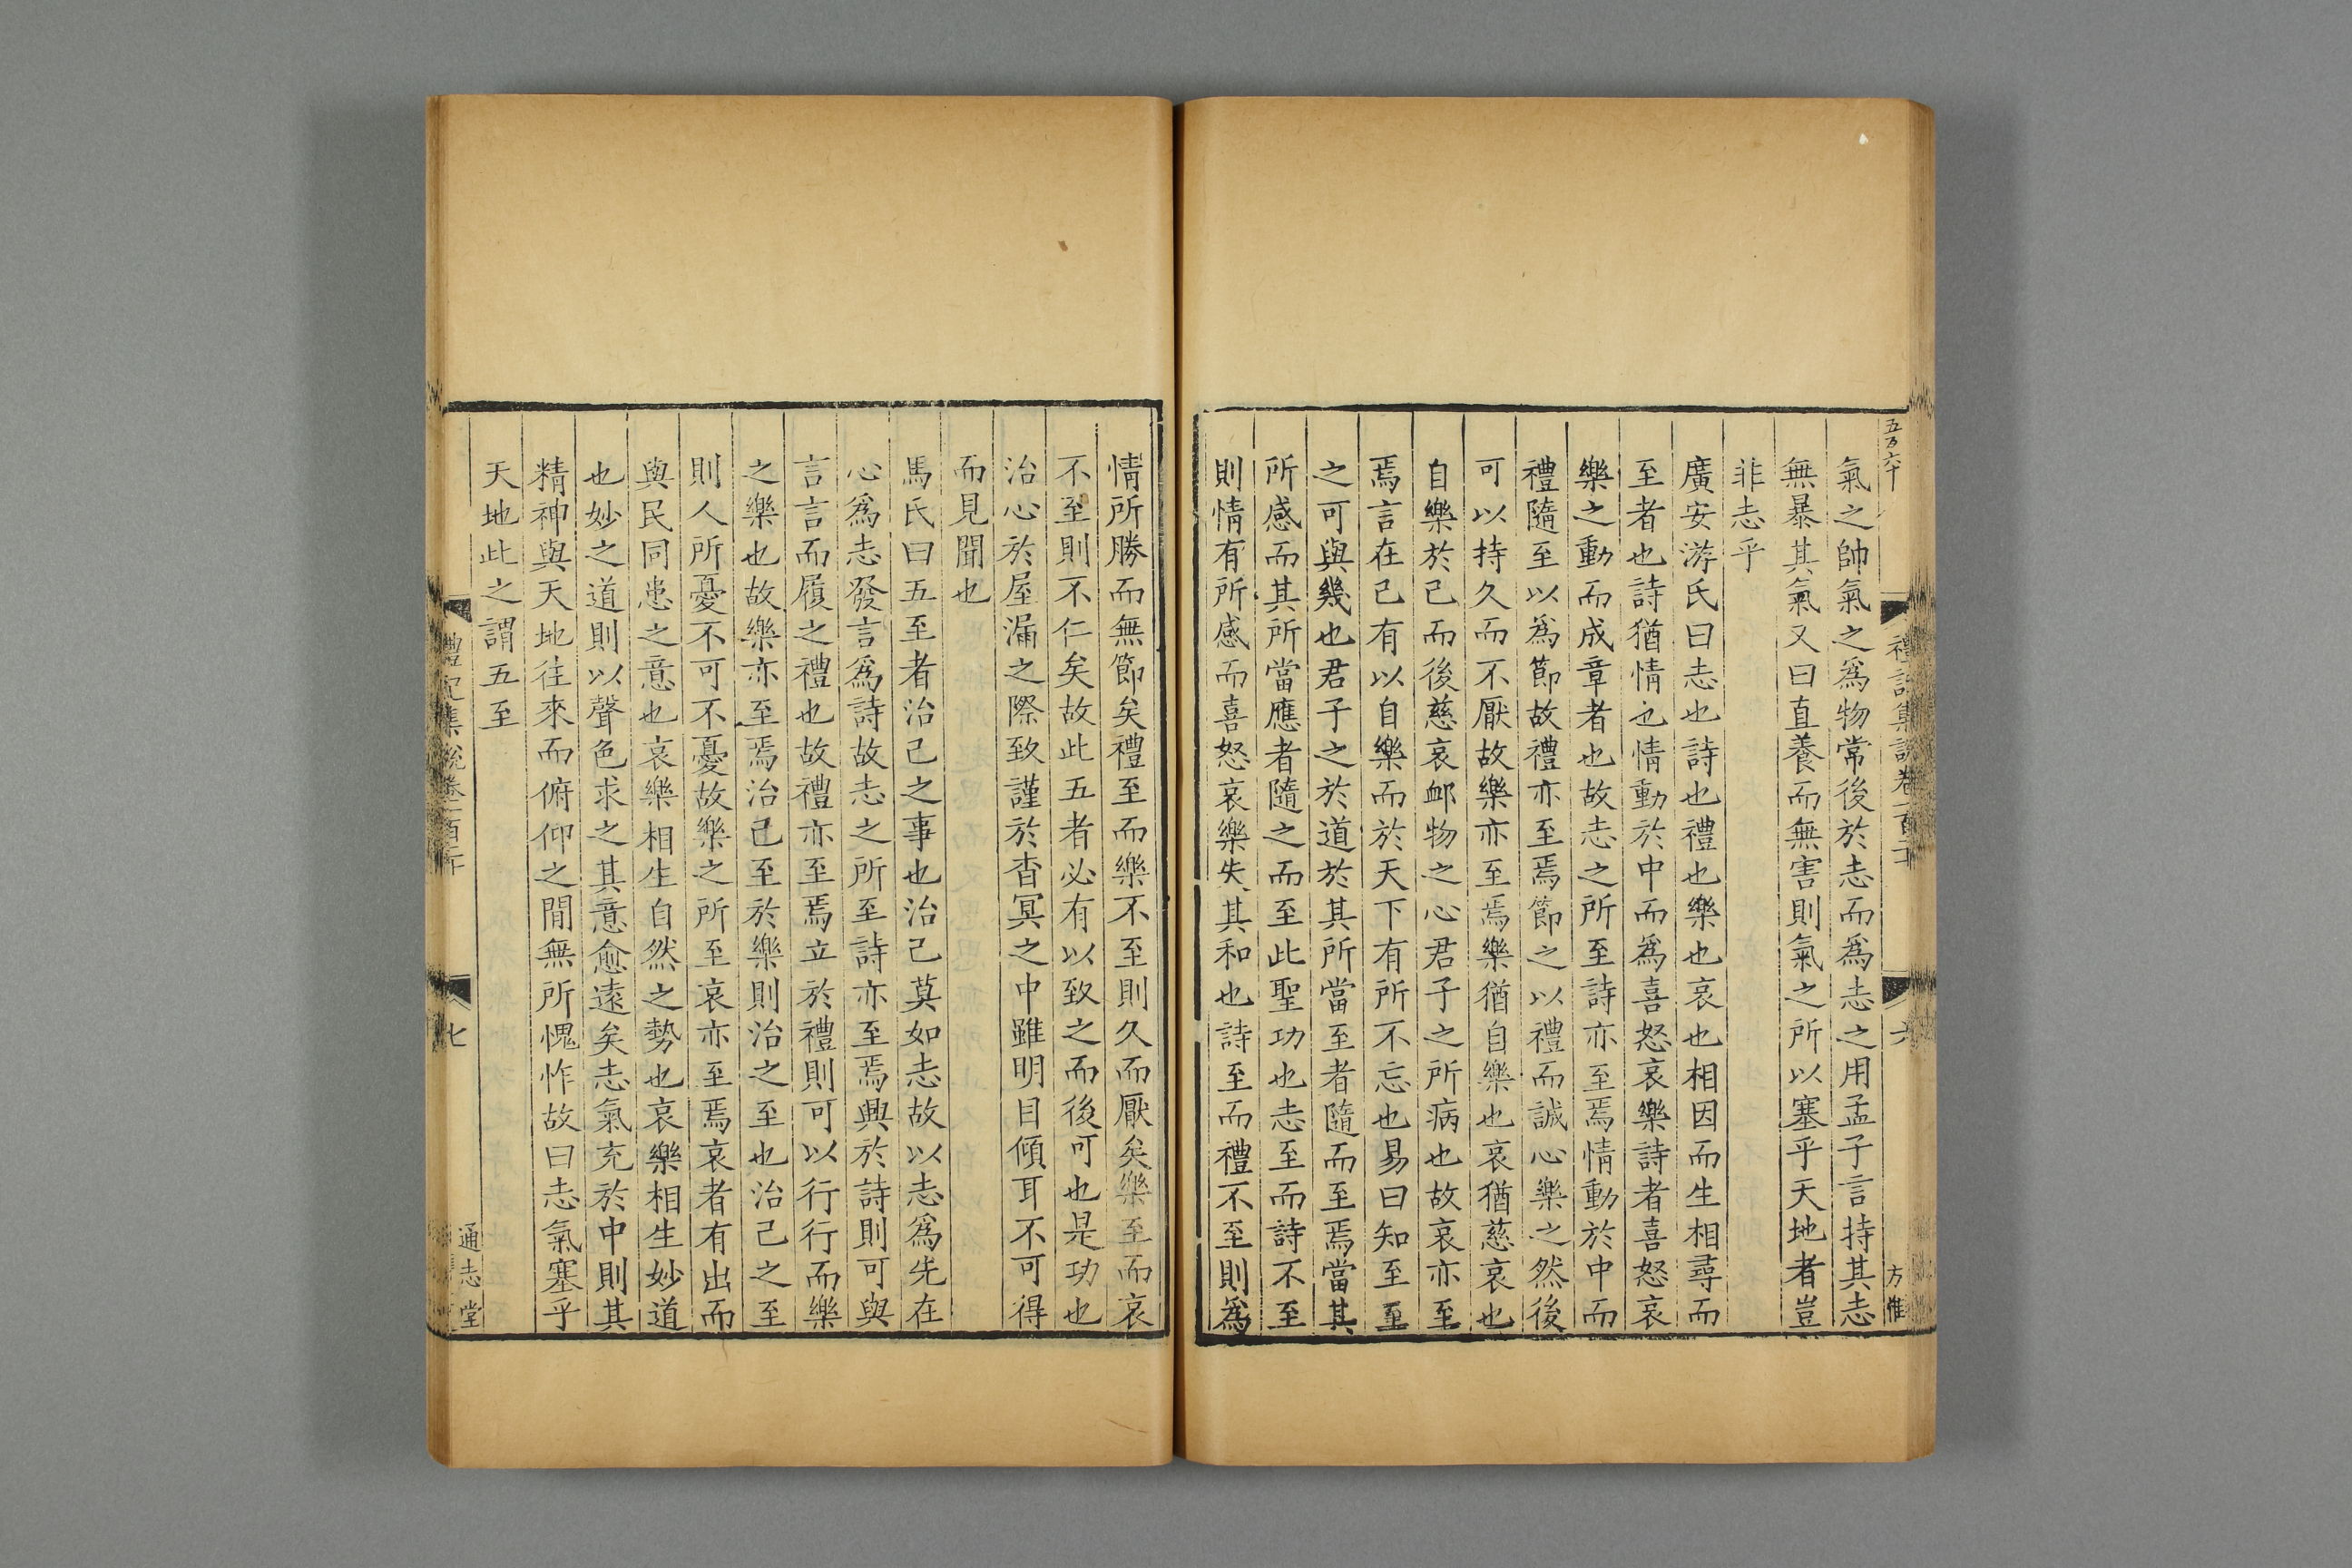 五百六十
禮記集說卷一百二十
六
方惟
氣之帥氣之爲物常後於志而爲志之用孟子言持其志
無暴其氣又曰直養而無害則氣之所以塞乎天地者豈
非志乎
廣安游氏曰志也詩也禮也樂也哀也相因而生相尋而
至者也詩猶情也情動於中而爲喜怒哀樂詩者喜怒哀
樂之動而成章者也故志之所至詩亦至焉情動於中而
禮隨至以爲節故禮亦至焉節之以禮而誠心樂之然後
可以持久而不厭故樂亦至焉樂猶自樂也哀猶慈哀也
自樂於己而後慈哀卹物之心君子之所病也故哀亦至
焉言在己有以自樂而於天下有所不忘也易曰知至至
之可與幾也君子之於道於其所當至者隨而至焉當其
所感而其所當應者隨之而至此聖功也志至而詩不至
則情有所感而喜怒哀樂失其和也詩至而禮不至則爲
情所勝而無節矣禮至而樂不至則久而厭矣樂至而哀
不至則不仁矣故此五者必有以致之而後可也是功也
治心於屋漏之際致謹於杳冥之中雖明目傾耳不可得
而見聞也
馬氏曰五至者治己之事也治己莫如志故以志爲先在
心爲志發言爲詩故志之所至詩亦至焉興於詩則可與
言言而履之禮也故禮亦至焉立於禮則可以行行而樂
之樂也故樂亦至焉治己至於樂則治之至也治己之至
則人所憂不可不憂故樂之所至哀亦至焉哀者有出而
與民同患之意也哀樂相生自然之勢也哀樂相生妙道
也妙之道則以聲色求之其意愈遠矣志氣充於中則其
精神與天地往來而俯仰之閒無所愧怍故曰志氣塞乎
天地此之謂五至
禮記集說卷一百二十
七
通志堂